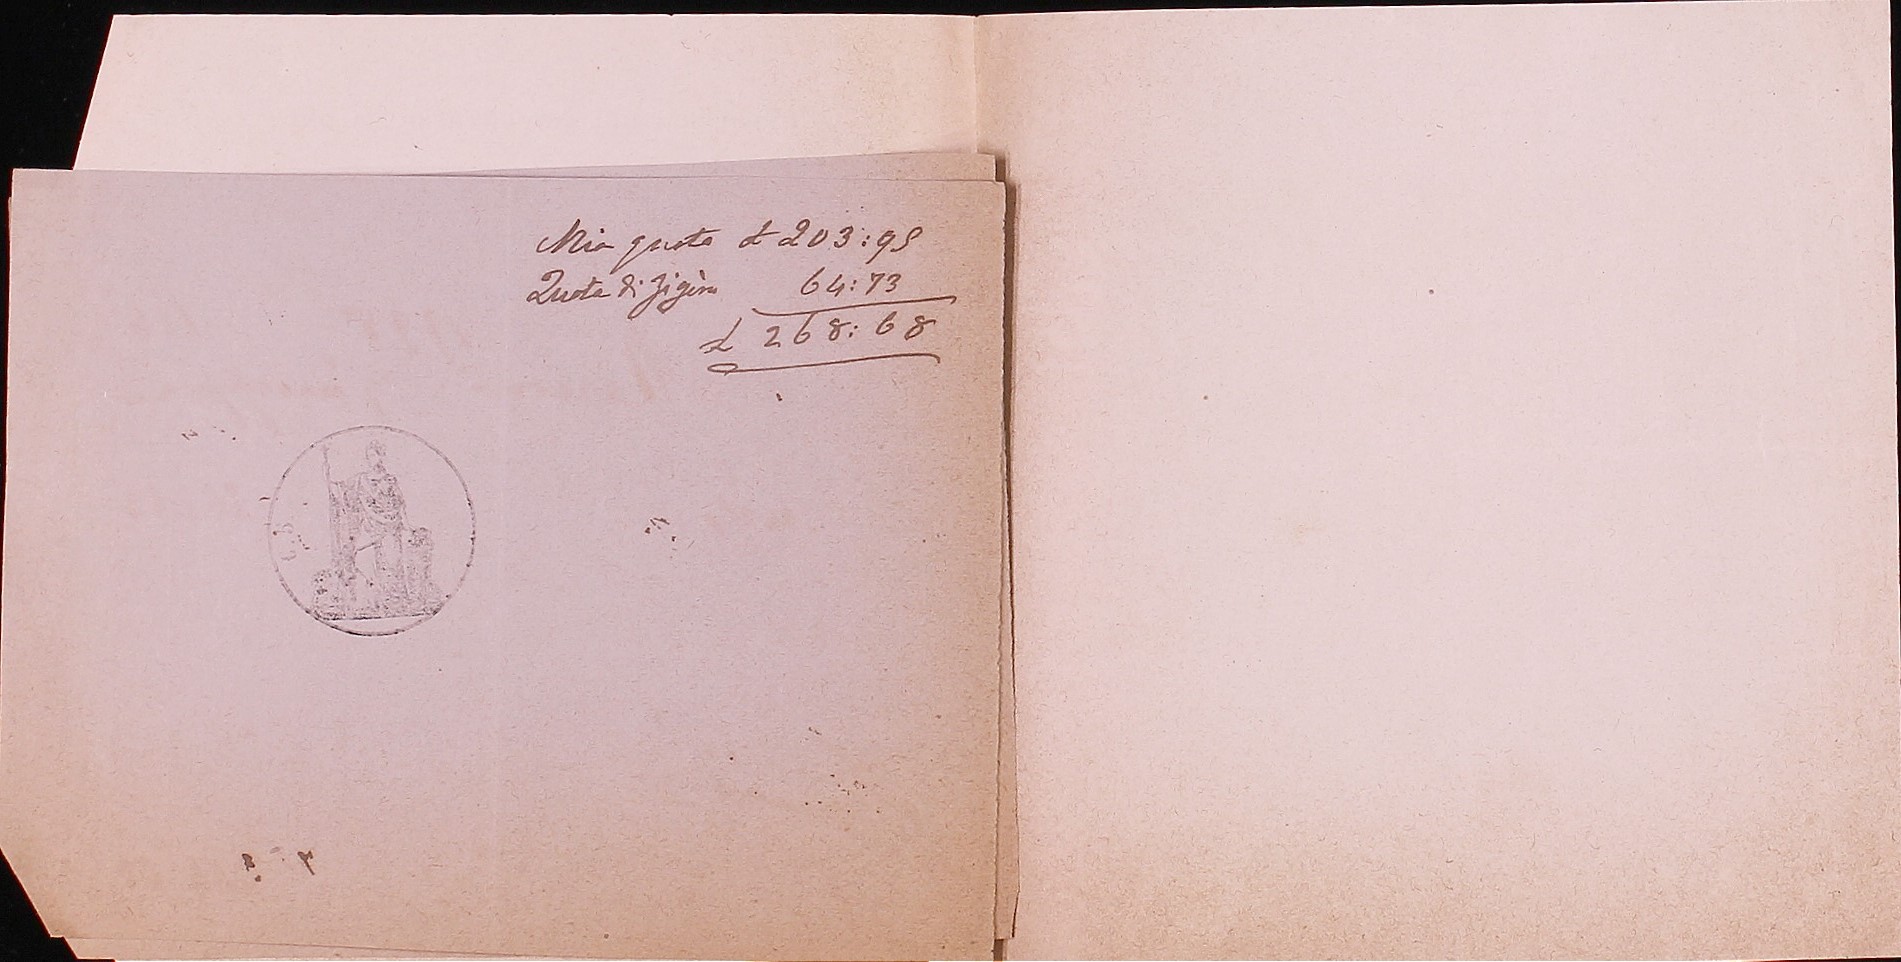 Mia quota £ 203:95
Quota di Gigin 64:73
£ 268:68